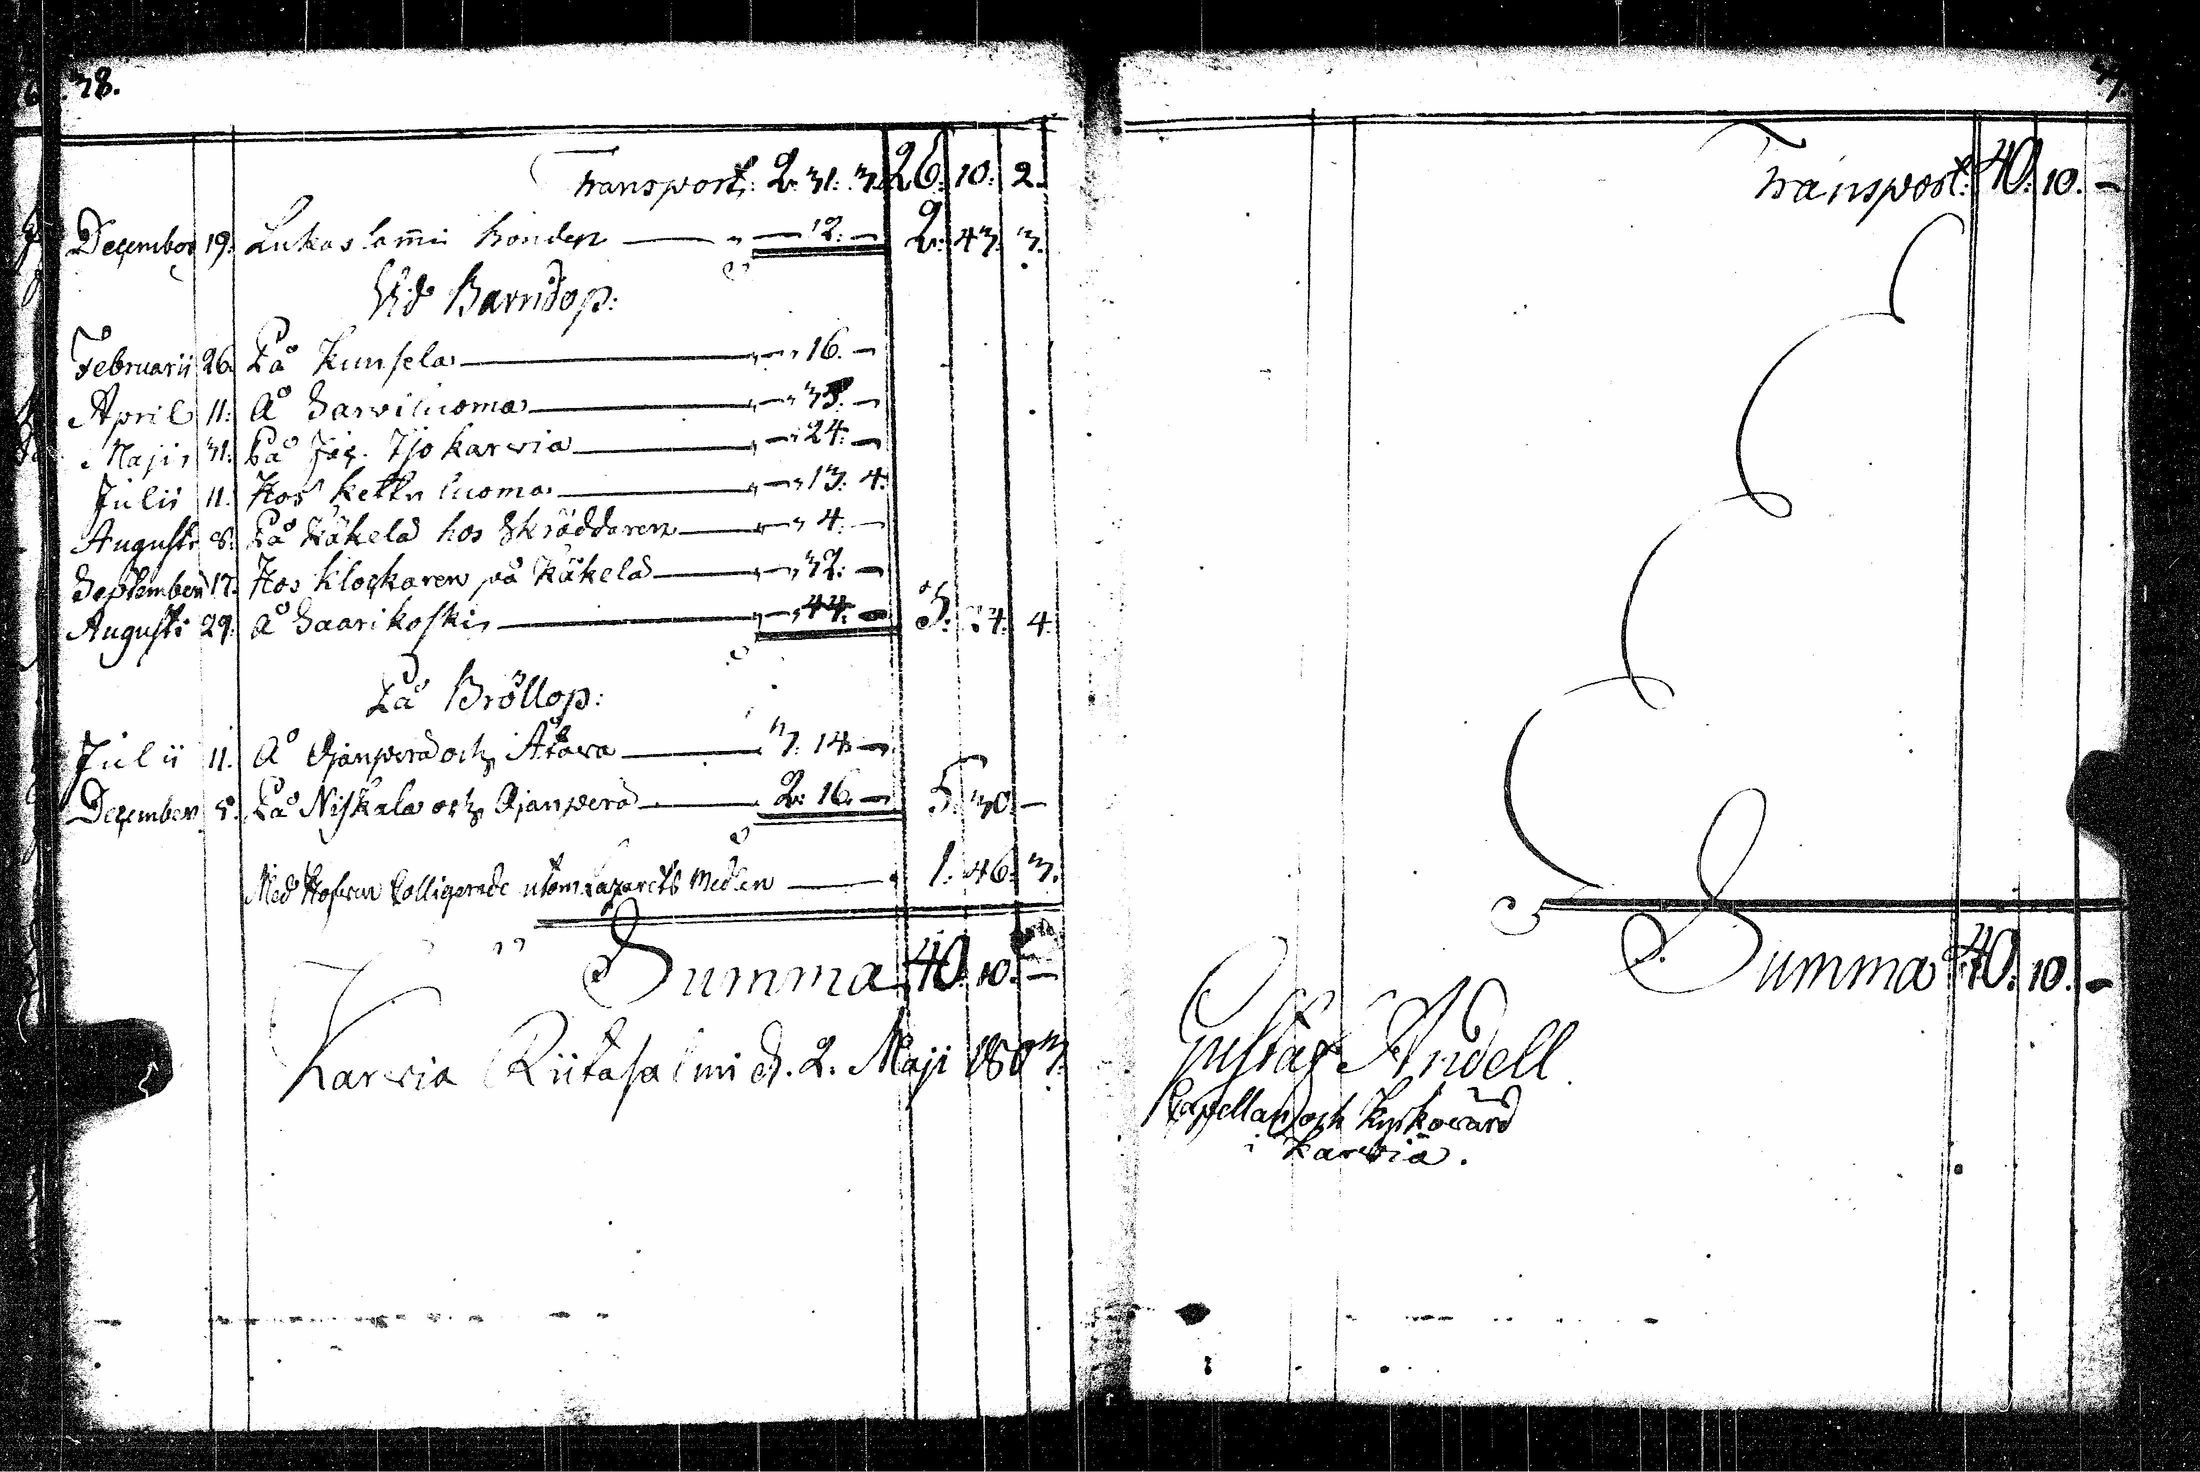 38.
Transport: 2. 31. 3. 26. 10. 2.
December 19. Lukas lami honden — " — 12. — 2. 43. 3.
Vid Barndop:
Februarii 26. På Kunsela — " — " 16. —
April 11. Å Sarviluoma — " — "
Maji 31. På Jäg. Yjo karvia — " — " 24. —
Julii 11. Hos kettu luoma — " — " 13. 4.
Augusti 8. På Käkelä hos Skräddaren — " — " 4. —
September 17. Hos Klockaren på Käkelä — " — " 32. —
Augusti 29. Å Saarikoski — " — " 44. — 3. 4.
På Bröllop:
Julii 11. Å Ojanperä och Alava — 3. 14. —
December 8. På Niskala och Ojanperä — 2. 16. — 5. 30. —
Med Hofwen Colligerade utom Lazarets Medlen — 1. 46. 3.
Summa 40. 10. —
Karvia Riitasalmi d. 2. Maji 1803.
Transport: 40. 10. —
Summa 40. 10. —
Gustaf Andell
Capellan och Kyrkovärd
i Karvia.